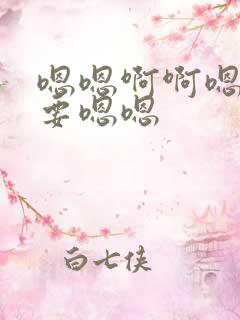 嗯嗯啊啊嗯
要嗯嗯
白七侠